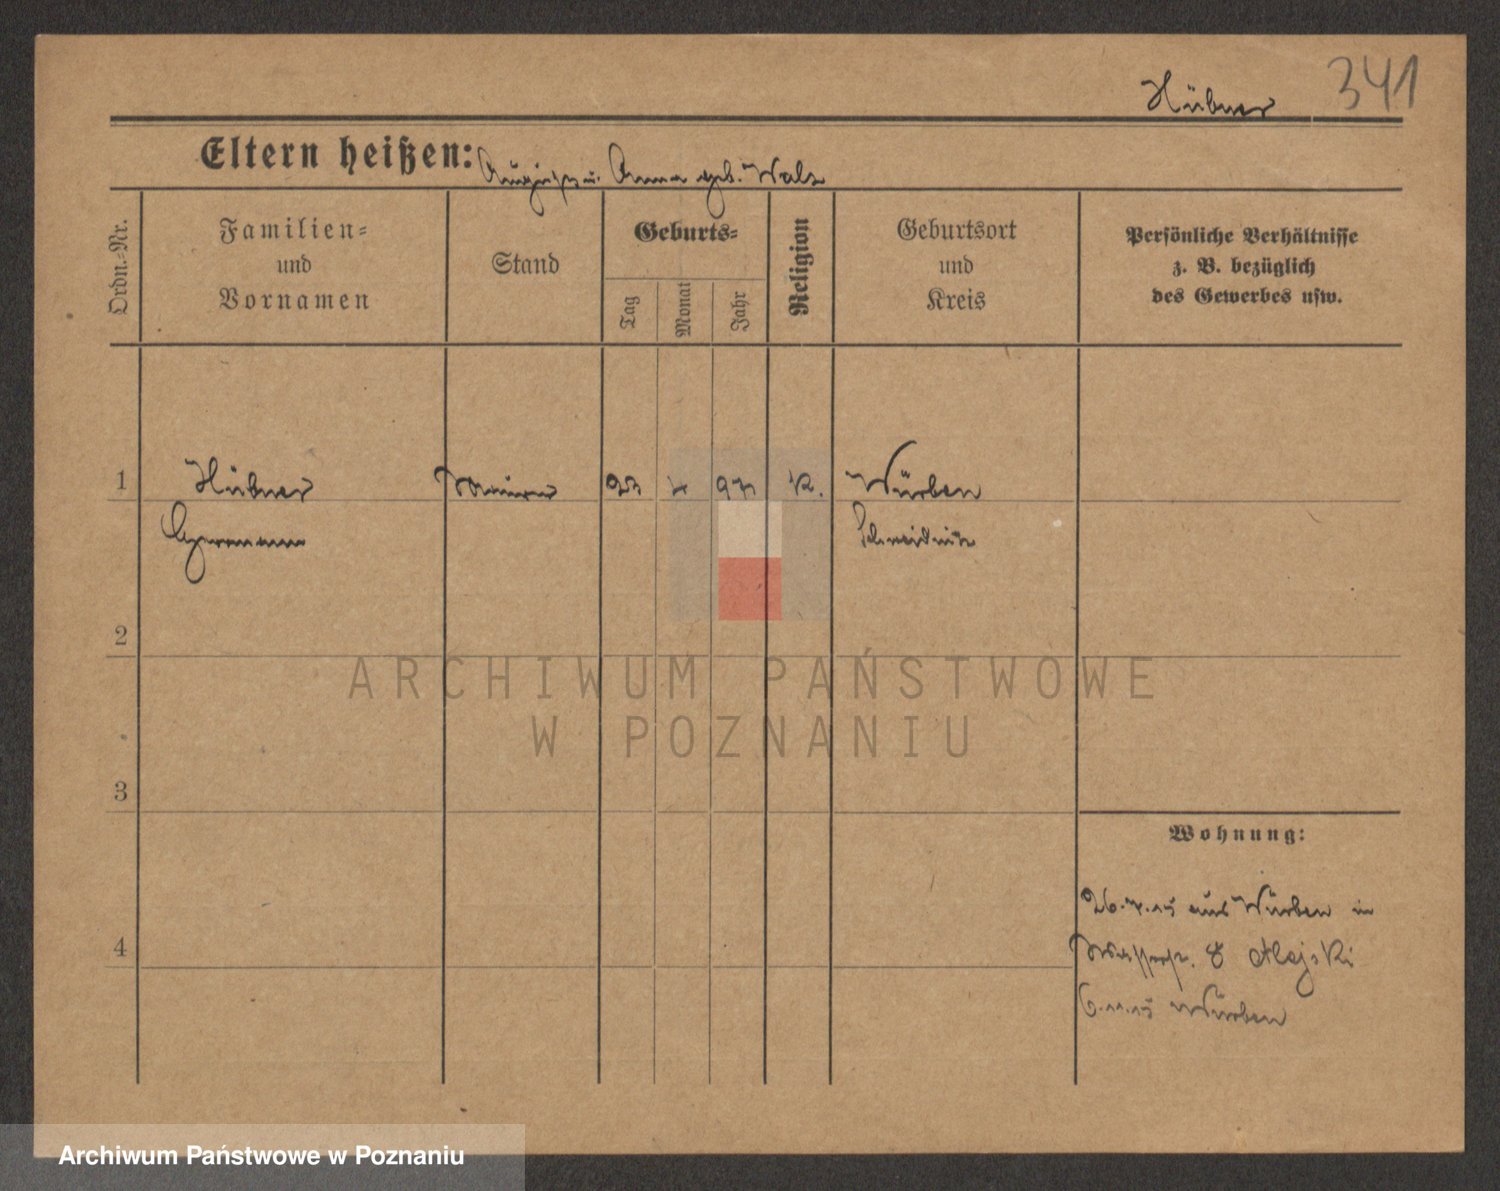 Hübner 341
Eltern heißen: August u. Anna geb. Walz
Ordn.-Nr.
Familien-
und
Vornamen
Stand
Geburts-
Tag
Monat
Jahr
Religion
Geburtsort
und
Kreis
Persönliche Verhältnisse
z. B. bezüglich
des Gewerbes usw.
1 Hübner Maurer 23 97 K. Würben
Hermann Schweidnitz
2
ARCHIWUM PAŃSTWOWE
W POZNANIU
3
Wohnung:
26.7.15 aus Würben in
4 8
6.11.15 Würben
Archiwum Państwowe w Poznaniu